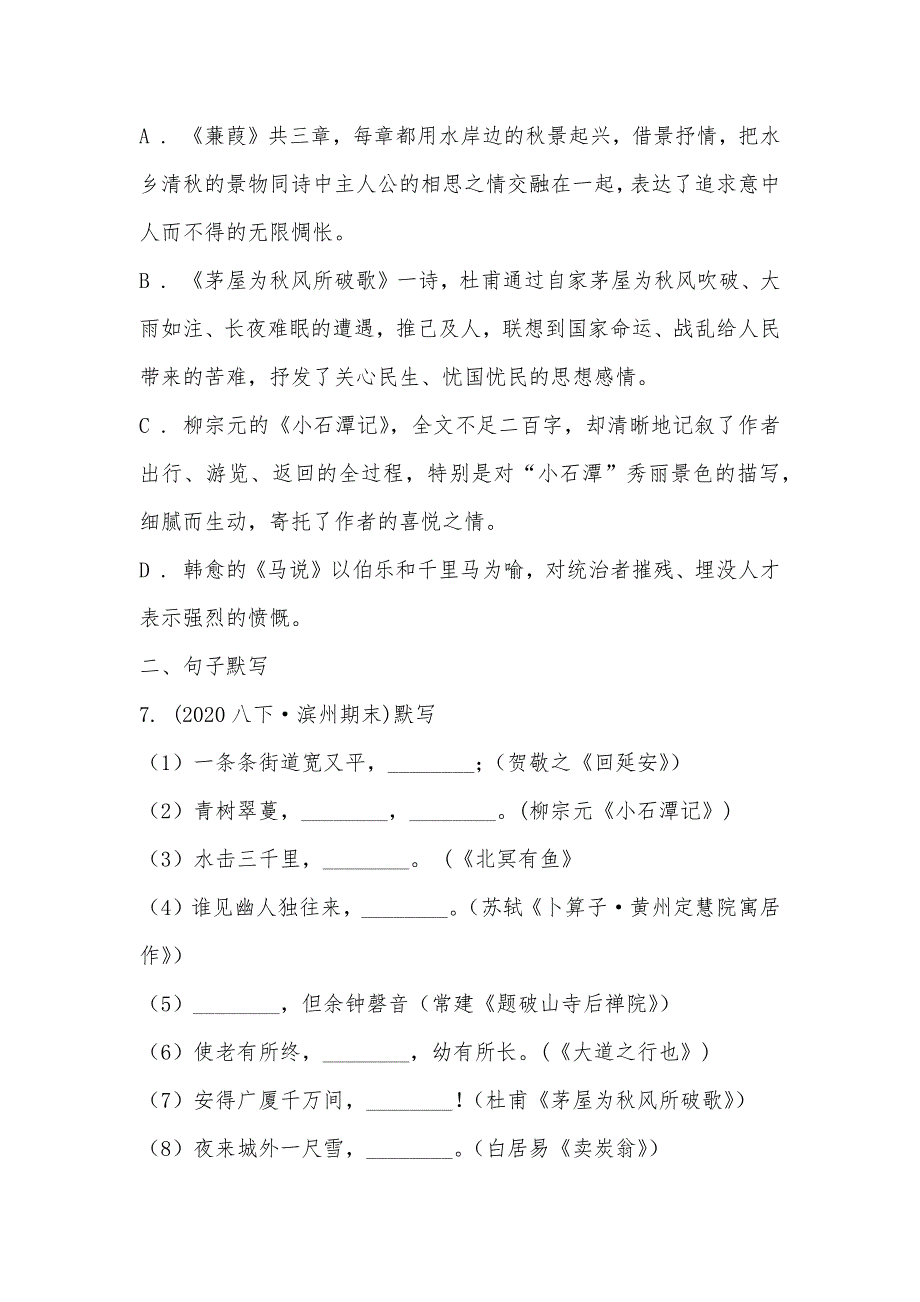 A . 《蒹葭》共三章，每章都用水岸边的秋景起兴，借景抒情，把水
乡清秋的景物同诗中主人公的相思之情交融在一起，表达了追求意中
人而不得的无限惆怅。
B . 《茅屋为秋风所破歌》一诗，杜甫通过自家茅屋为秋风吹破、大
雨如注、长夜难眠的遭遇，推己及人，联想到国家命运、战乱给人民
带来的苦难，抒发了关心民生、忧国忧民的思想感情。
C . 柳宗元的《小石潭记》，全文不足二百字，却清晰地记叙了作者
出行、游览、返回的全过程，特别是对“小石潭”秀丽景色的描写，
细腻而生动，寄托了作者的喜悦之情。
D . 韩愈的《马说》以伯乐和千里马为喻，对统治者摧残、埋没人才
表示强烈的愤慨。
二、句子默写
7. (2020八下·滨州期末)默写
（1）一条条街道宽又平，________；（贺敬之《回延安》）
（2）青树翠蔓，________，________。(柳宗元《小石潭记》)
（3）水击三千里，________。 (《北冥有鱼》
（4）谁见幽人独往来，________。（苏轼《卜算子·黄州定慧院寓居
作》）
（5）________，但余钟磬音（常建《题破山寺后禅院》）
（6）使老有所终，________，幼有所长。(《大道之行也》)
（7）安得广厦千万间，________!（杜甫《茅屋为秋风所破歌》）
（8）夜来城外一尺雪，________。（白居易《卖炭翁》）